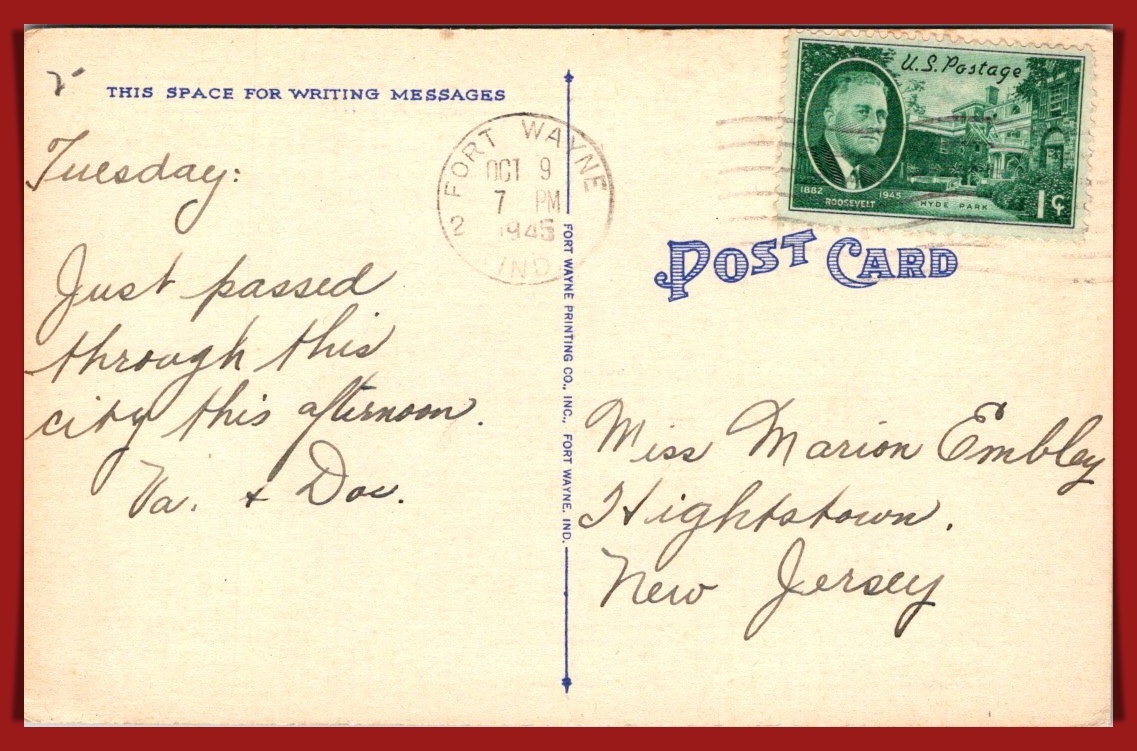 THIS SPACE FOR WRITING MESSAGES
Tuesday:
Just passed
through this
city this afternoon.
Va. + Doc.
FORT WAYNE
OCT 9
7 PM
1945
2
IND.
FORT WAYNE PRINTING CO., INC., FORT WAYNE, IND.
U.S. Postage
1882
ROOSEVELT
1945
HYDE PARK
1¢
POST CARD
Miss Marion Embley
Hightstown.
New Jersey